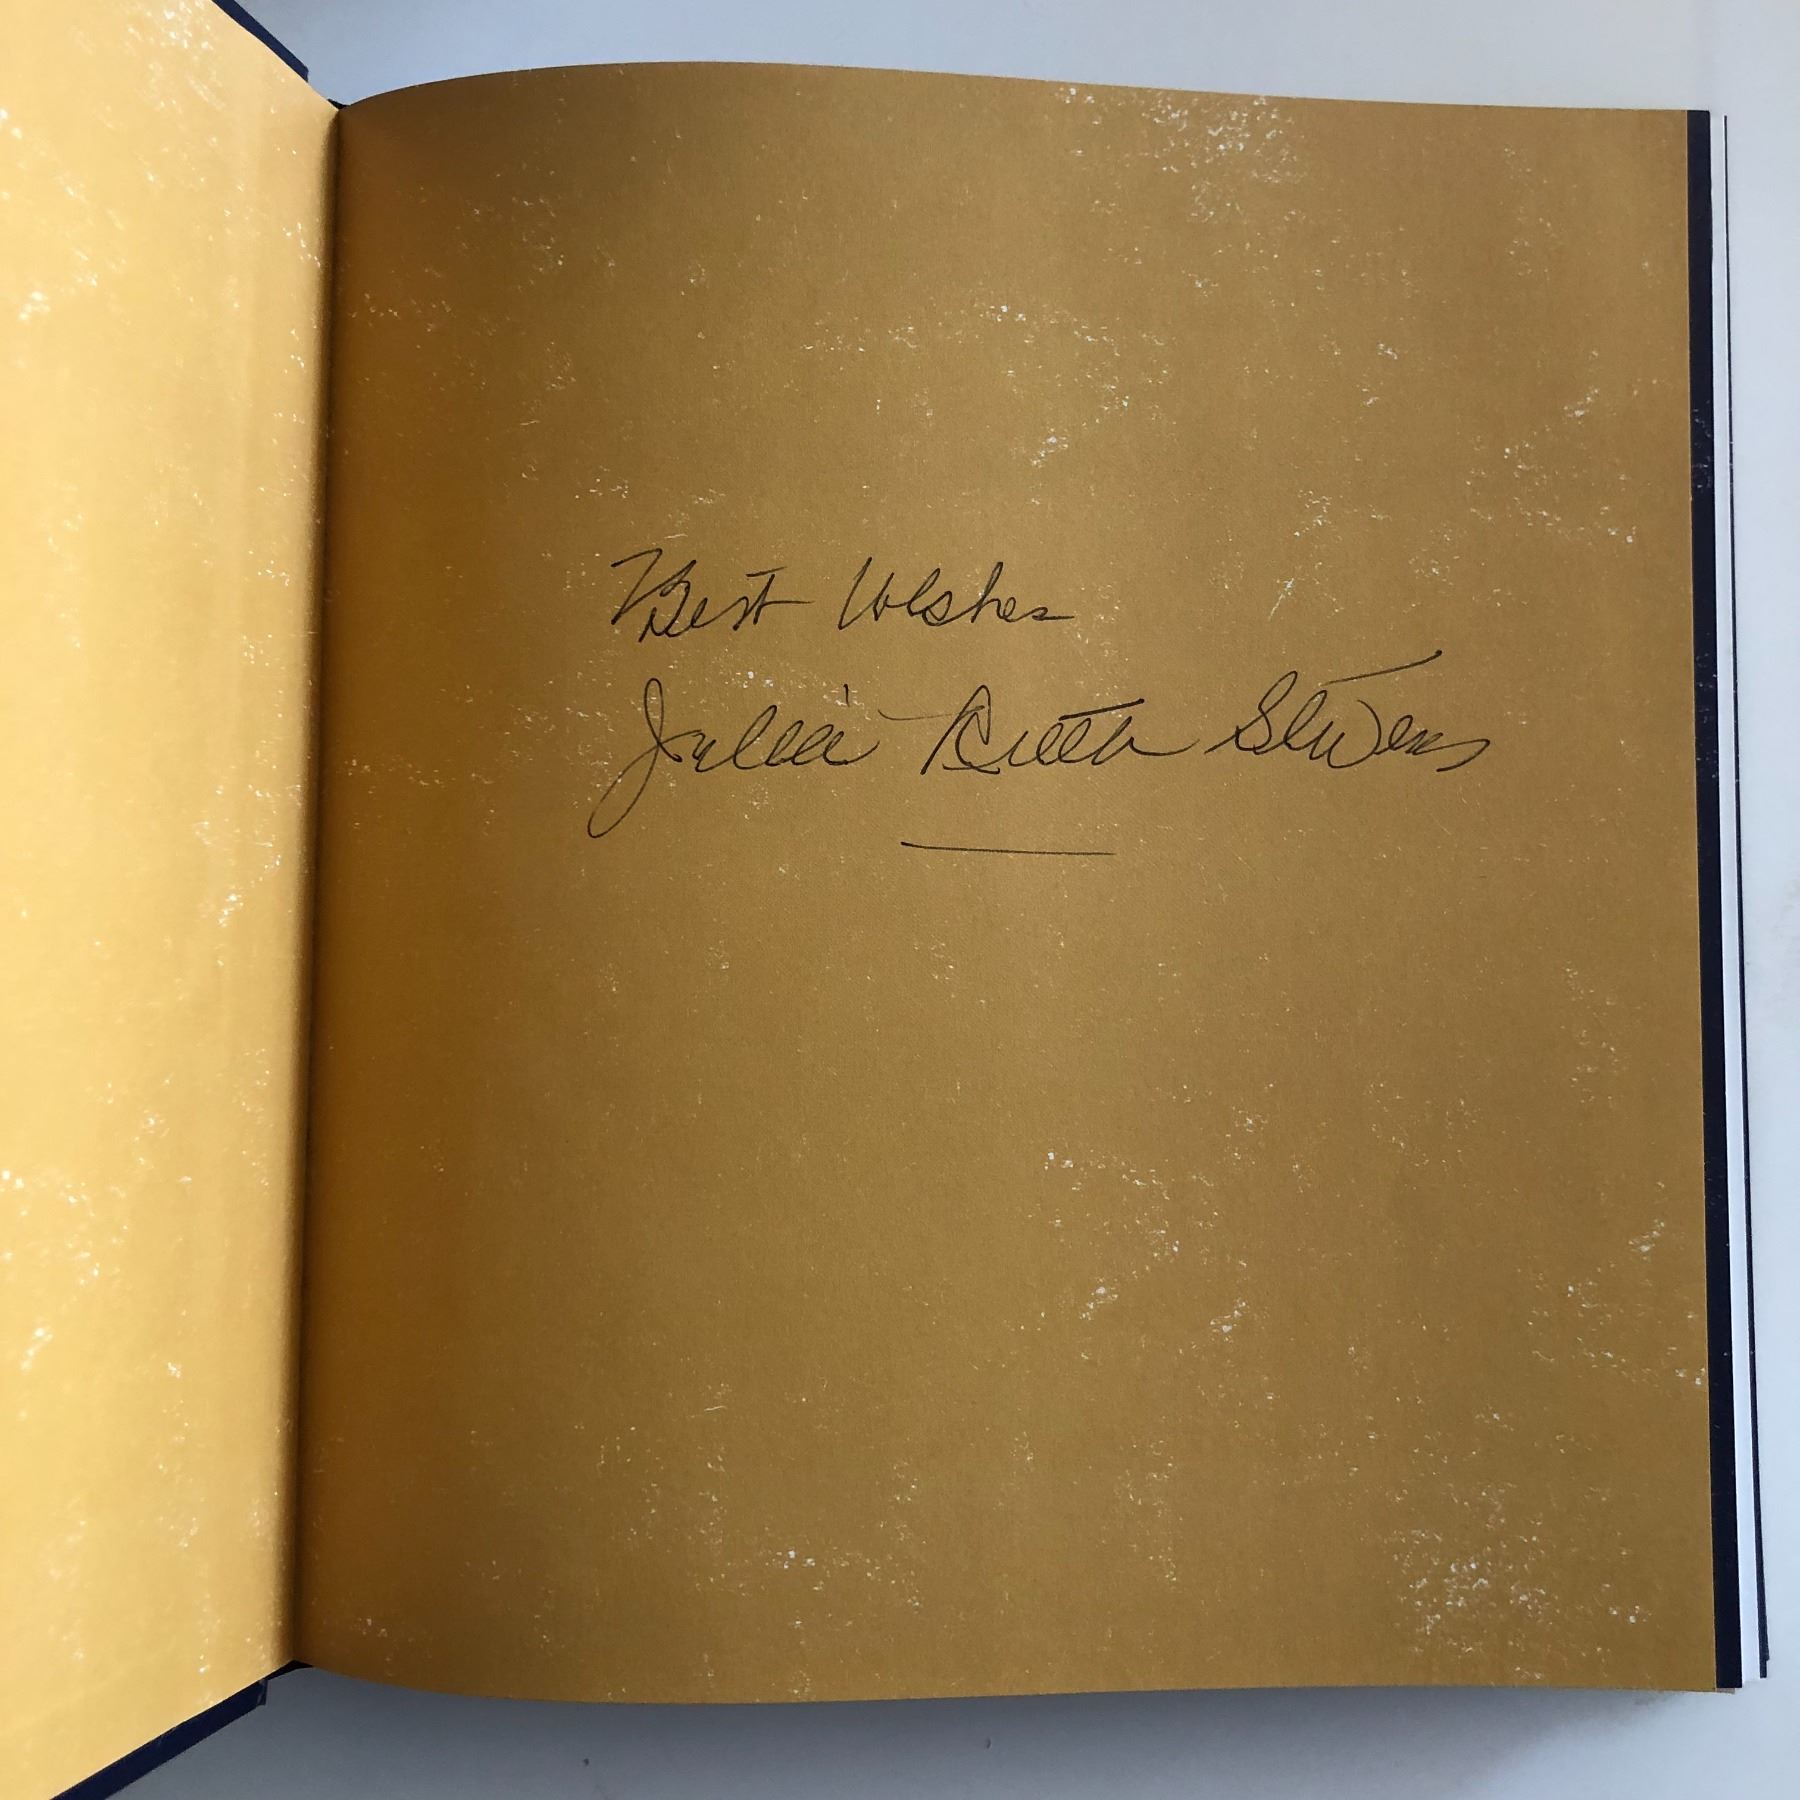 Best Wishes
Julia Ruth Stevens